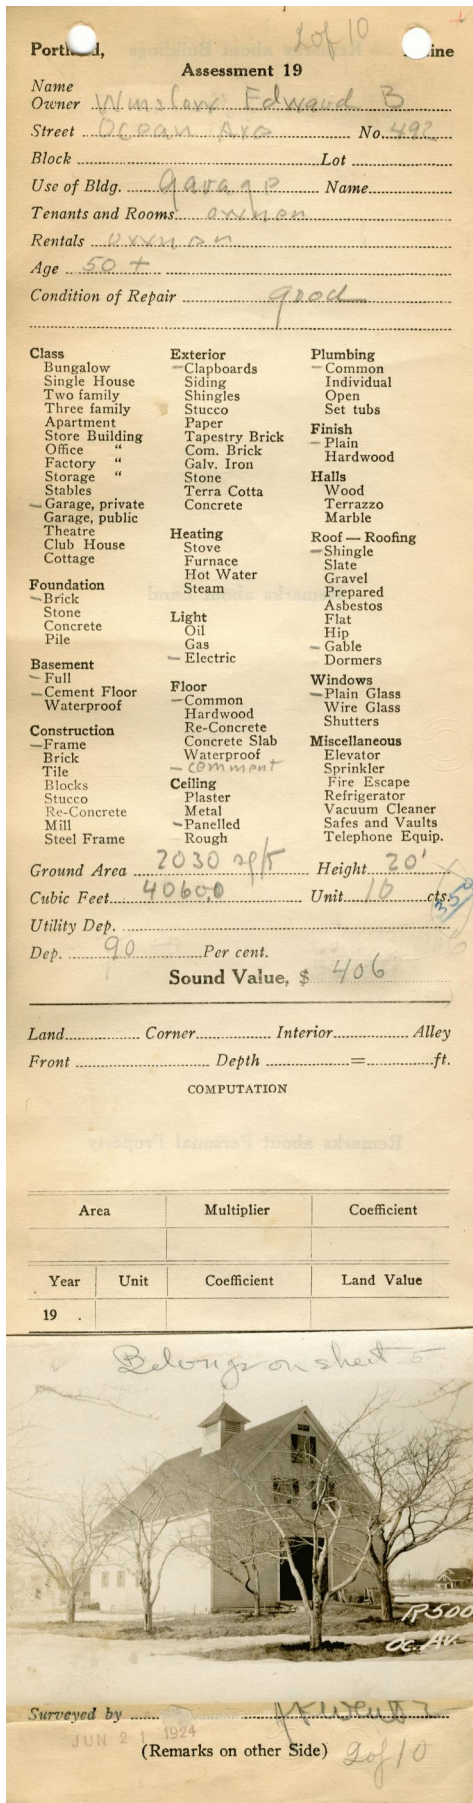 2 of 10
Portland, Maine
Assessment 19
Name
Owner Winslow Edward B
Street Ocean Ave No. 492
Block Lot
Use of Bldg. garage Name
Tenants and Rooms owner
Rentals owner
Age 50 +
Condition of Repair good
Class
Bungalow
Single House
Two family
Three family
Apartment
Store Building
Office "
Factory "
Storage "
Stables
Garage, private
Garage, public
Theatre
Club House
Cottage
Foundation
Brick
Stone
Concrete
Pile
Basement
Full
Cement Floor
Waterproof
Construction
Frame
Brick
Tile
Blocks
Stucco
Re-Concrete
Mill
Steel Frame
Exterior
Clapboards
Siding
Shingles
Stucco
Paper
Tapestry Brick
Com. Brick
Galv. Iron
Stone
Terra Cotta
Concrete
Heating
Stove
Furnace
Hot Water
Steam
Light
Oil
Gas
Electric
Floor
Common
Hardwood
Re-Concrete
Concrete Slab
Waterproof
cemment
Ceiling
Plaster
Metal
Panelled
Rough
Plumbing
Common
Individual
Open
Set tubs
Finish
Plain
Hardwood
Halls
Wood
Terrazzo
Marble
Roof — Roofing
Shingle
Slate
Gravel
Prepared
Asbestos
Flat
Hip
Gable
Dormers
Windows
Plain Glass
Wire Glass
Shutters
Miscellaneous
Elevator
Sprinkler
Fire Escape
Refrigerator
Vacuum Cleaner
Safes and Vaults
Telephone Equip.
Ground Area 2030 sqft Height 20'
Cubic Feet 40600 Unit 10 cts.
350
Utility Dep.
Dep. 90 Per cent.
Sound Value, $ 406
Land Corner Interior Alley
Front Depth = ft.
COMPUTATION
Area Multiplier Coefficient
Year Unit Coefficient Land Value
19 .
Belongs on sheet 5
R500
Oc. Av.
Surveyed by
JUN 21 1924
(Remarks on other Side) 2 of 10